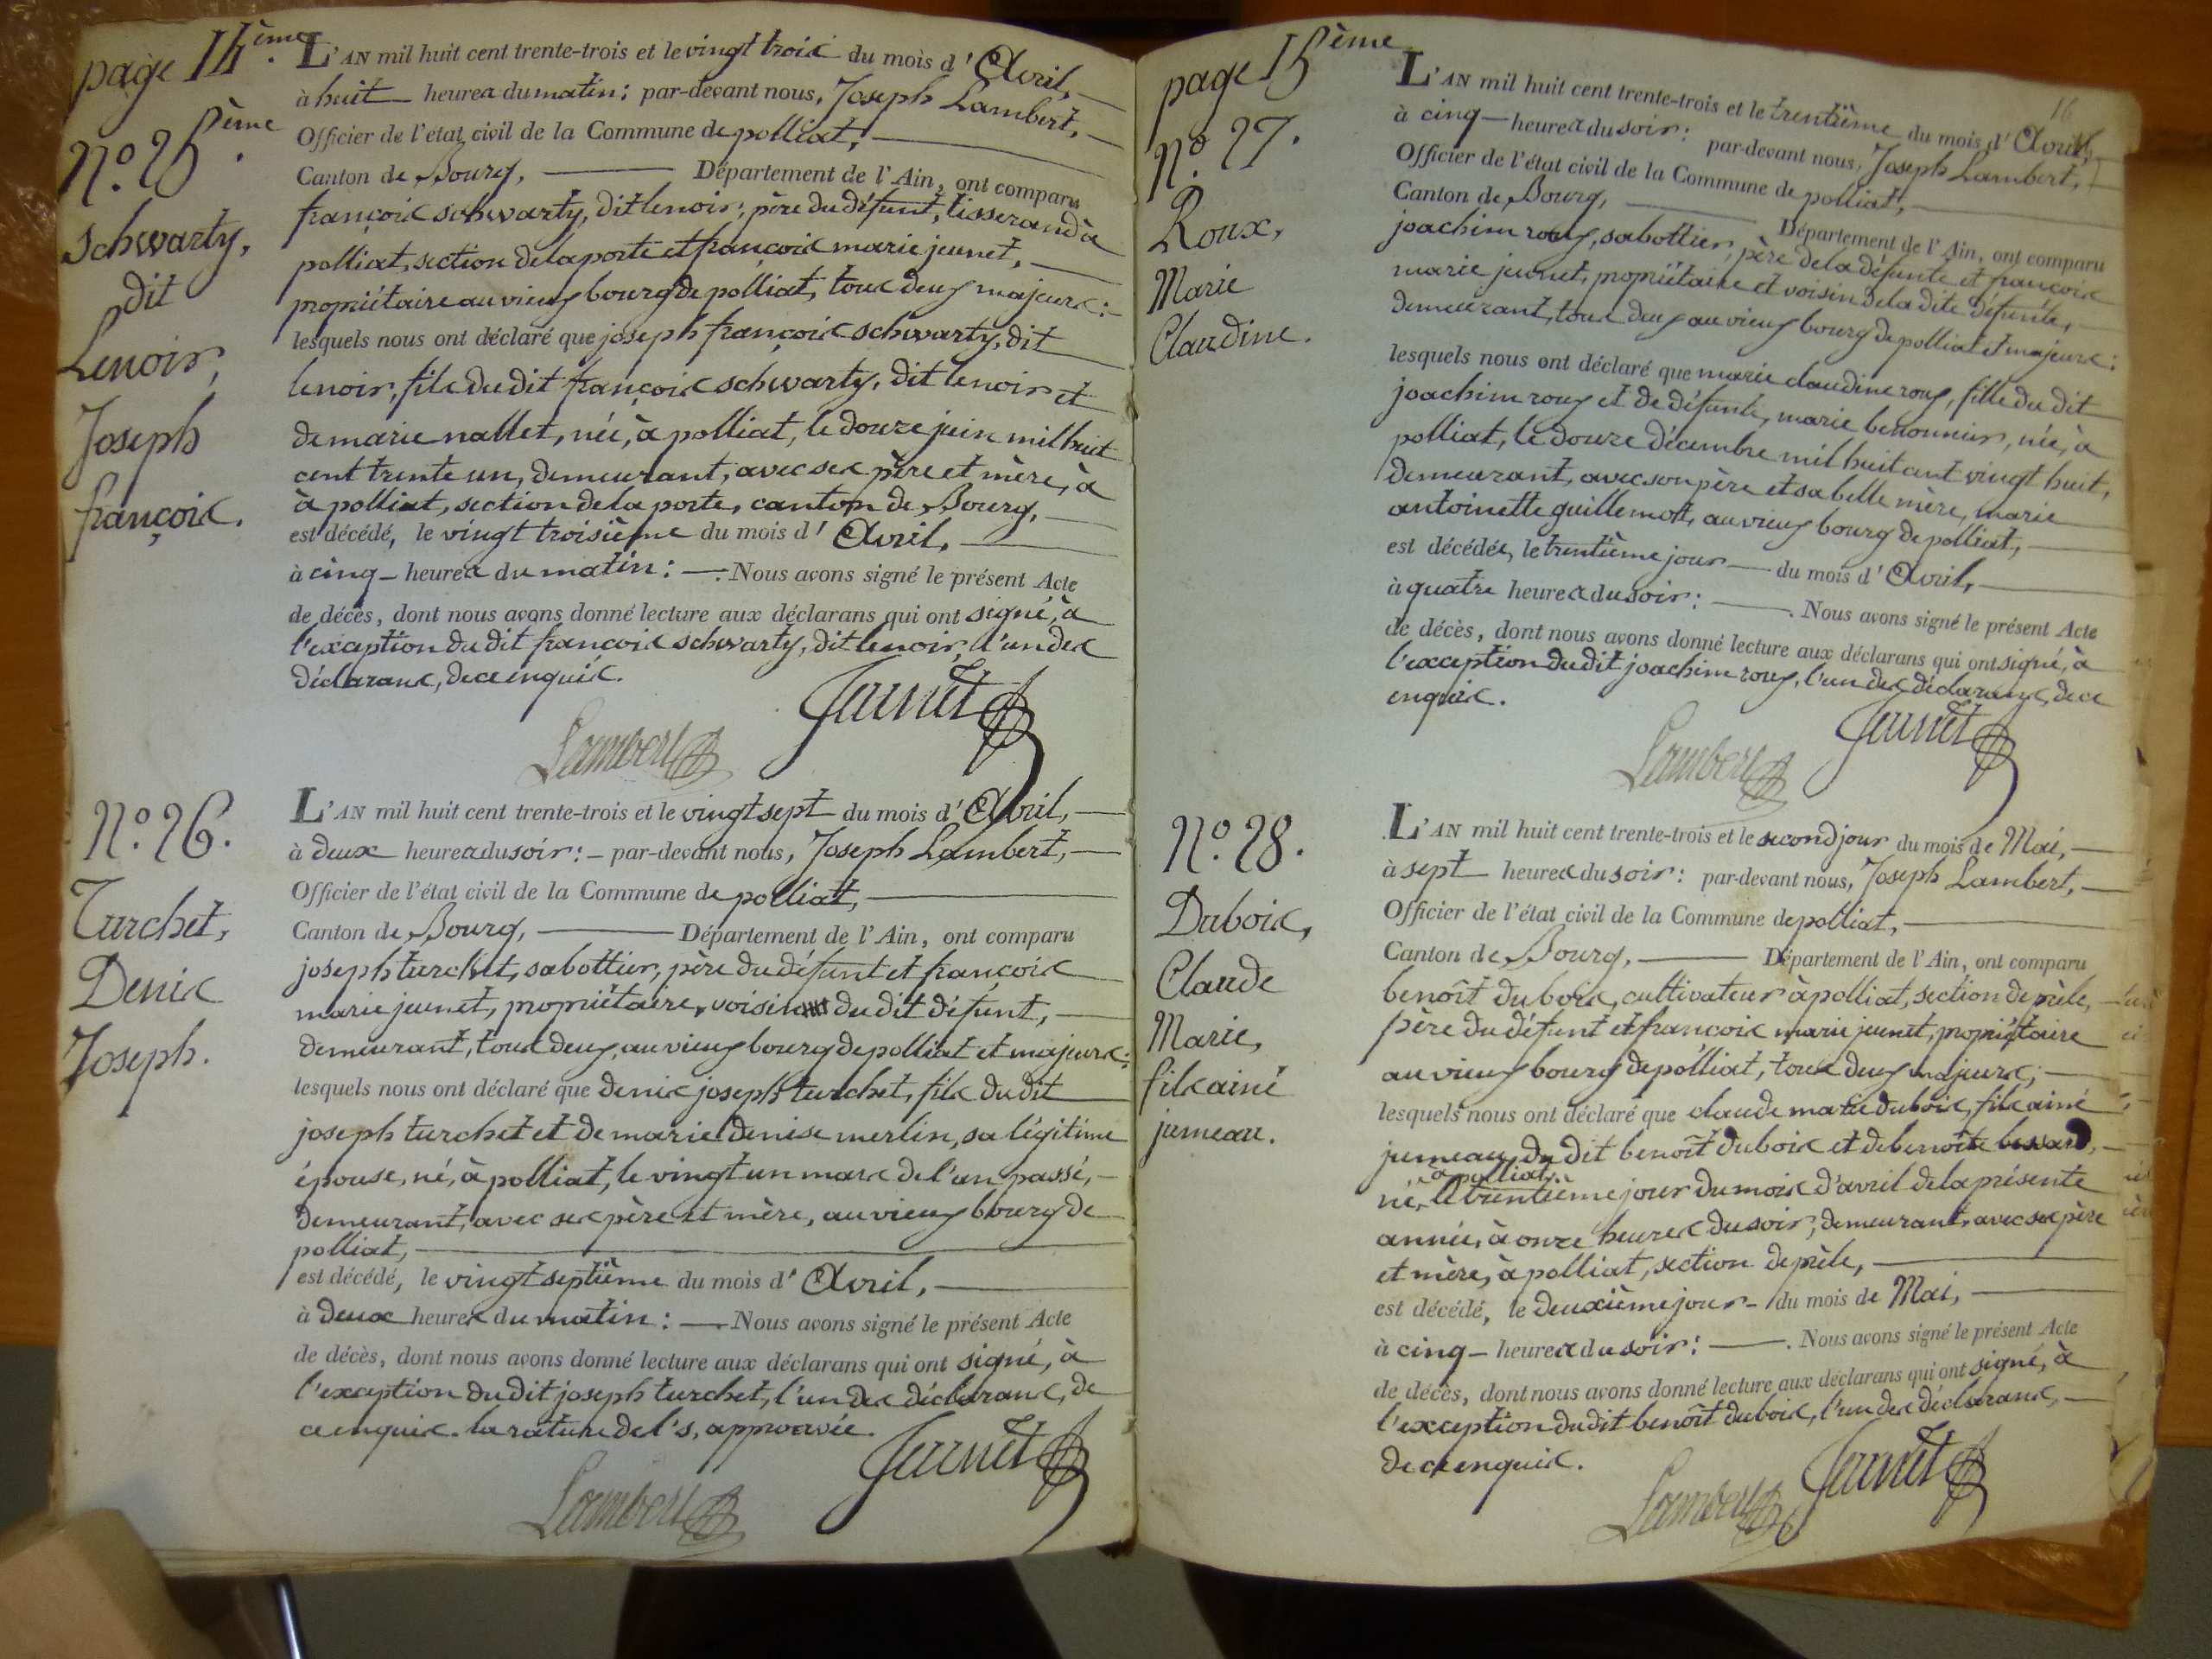 page 14.ème
N.o 25.ème
Schwarty,
dit
Lenoir,
Joseph
françois.
L'AN mil huit cent trente-trois et le vingt trois du mois d'Avril,
à huit heures du matin: par-devant nous, Joseph Lambert,
Officier de l'état civil de la Commune de polliat,
Canton de Bourg, Département de l'Ain, ont comparu
françois schwarty, dit lenoir, père du défunt, tisserand à
polliat, section de la porte et françois marie jeunet,
propriétaire au vieux bourg de polliat, tous deux majeurs:
lesquels nous ont déclaré que joseph françois schwarty, dit
lenoir, fils du dit françois schwarty, dit lenoir et
de marie nallet, née, à polliat, le douze juin mil huit
cent trente un, demeurant, avec ses père et mère, à
à polliat, section de la porte, canton de Bourg,
est décédé, le vingt troisième du mois d'Avril,
à cinq heures du matin: Nous avons signé le présent Acte
de décès, dont nous avons donné lecture aux déclarans qui ont signé, à
l'exception du dit françois schwarty, dit lenoir, l'un des
déclarans, de ce enquis.
Jeunet
Lambert
N.o 26.
Turchet,
Denis
Joseph.
L'AN mil huit cent trente-trois et le vingt sept du mois d'Avril,
à deux heures du soir: par-devant nous, Joseph Lambert,
Officier de l'état civil de la Commune de polliat,
Canton de Bourg, Département de l'Ain, ont comparu
joseph turchet, sabottier, père du défunt et françois
marie jeunet, propriétaire, voisin du dit défunt,
demeurant, tous deux, au vieux bourg de polliat et majeurs:
lesquels nous ont déclaré que denis joseph turchet, fils du dit
joseph turchet et de marie denise merlin, sa légitime
épouse, né, à polliat, le vingt un mars de l'an passé,
demeurant, avec ses père et mère, au vieux bourg de
polliat,
est décédé, le vingt septième du mois d'Avril,
à deux heures du matin: Nous avons signé le présent Acte
de décès, dont nous avons donné lecture aux déclarans qui ont signé, à
l'exception du dit joseph turchet, l'un des déclarans, de
ce enquis. la rature de l's, approuvée.
Jeunet
Lambert
page 15ème
16
N.o 27.
Roux,
Marie
Claudine.
L'AN mil huit cent trente-trois et le trentième du mois d'Avril,
à cinq heures du soir: par-devant nous, Joseph Lambert,
Officier de l'état civil de la Commune de polliat,
Canton de Bourg, Département de l'Ain, ont comparu
joachim roux, sabottier, père de la défunte et françois
marie jeunet, propriétaire et voisin de la dite défunte,
demeurant, tous deux au vieux bourg de polliat et majeurs:
lesquels nous ont déclaré que marie claudine roux, fille du dit
joachim roux et de défunte, marie benonnier, née, à
polliat, le douze décembre mil huit cent vingt huit,
demeurant, avec son père et sa belle mère, marie
antoinette guillemot, au vieux bourg de polliat,
est décédée, le trentième jour du mois d'Avril,
à quatre heures du soir: Nous avons signé le présent Acte
de décès, dont nous avons donné lecture aux déclarans qui ont signé, à
l'exception du dit joachim roux, l'un des déclarans, de ce
enquis.
Jeunet
Lambert
N.o 28.
Dubois,
Claude
Marie,
fils ainé
jumeau.
L'AN mil huit cent trente-trois et le second jour du mois de Mai,
à sept heures du soir: par-devant nous, Joseph Lambert,
Officier de l'état civil de la Commune de polliat,
Canton de Bourg, Département de l'Ain, ont comparu
benoît dubois, cultivateur à polliat, section de prèle,
père du défunt et françois marie jeunet, propriétaire
au vieux bourg de polliat, tous deux majeurs;
lesquels nous ont déclaré que claude marie dubois, fils ainé
jumeau du dit benoît dubois et de benoîte bessard,
à polliat,
né, le trentième jour du mois d'avril de la présente
année, à onze heures du soir, demeurant, avec ses père
et mère, à polliat, section de prèle,
est décédé, le deuxième jour du mois de Mai,
à cinq heures du soir: Nous avons signé le présent Acte
de décès, dont nous avons donné lecture aux déclarans qui ont signé, à
l'exception du dit benoît dubois, l'un des déclarans,
de ce enquis.
Jeunet
Lambert